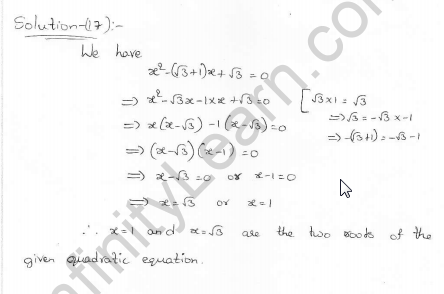 Solution-(17):-
We have
x² -(√3+1)x + √3 = 0
⇒ x² - √3x - 1×x + √3 = 0 [ √3×1 = √3
⇒ √3 = -√3 × -1
⇒ x(x-√3) -1(x-√3) = 0
⇒ -(√3+1) = -√3 -1
⇒ (x-√3) (x-1) = 0
⇒ x-√3 = 0 or x-1 = 0
⇒ x = √3 or x = 1
∴ x = 1 and x = √3 are the two roots of the
given quadratic equation.
nfinityLearn.com